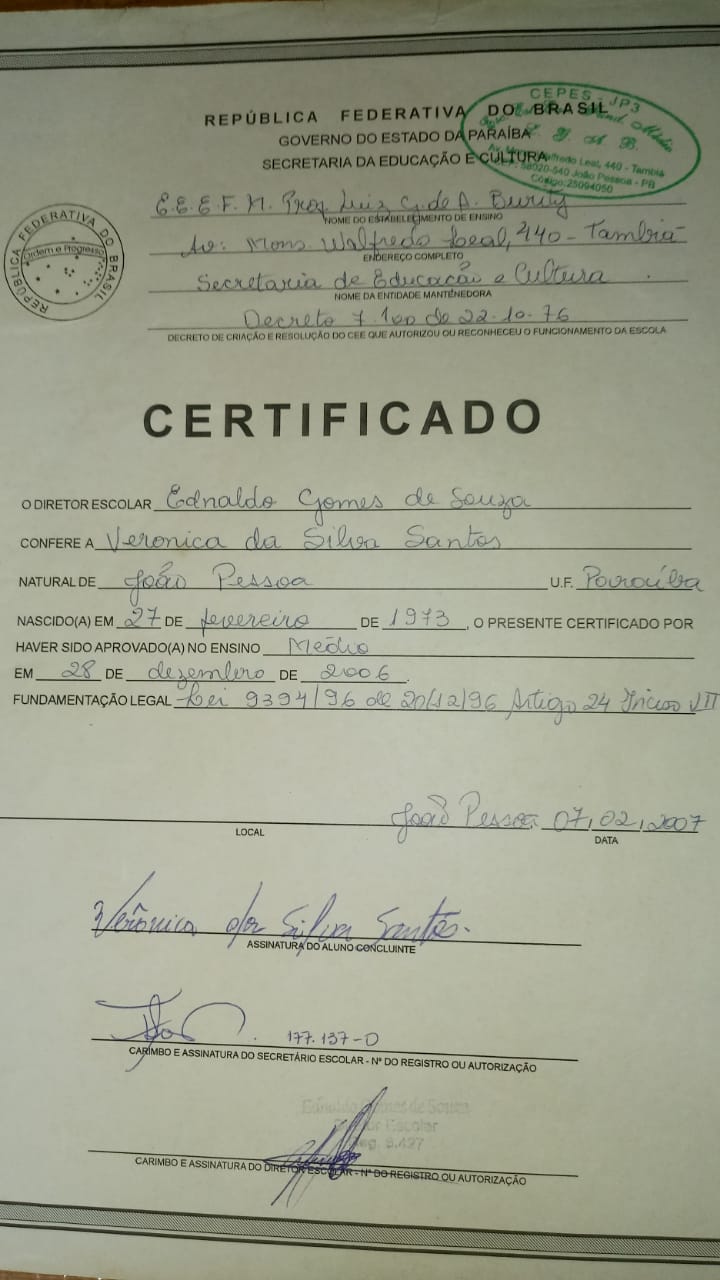 REPÚBLICA FEDERATIVA DO BRASIL
GOVERNO DO ESTADO DA PARAÍBA
SECRETARIA DA EDUCAÇÃO E CULTURA
CEPES - JP3
L. Y. A. B.
Leal, 440 - Tambiá
58020-540 João Pessoa - PB
Código: 25094050
REPÚBLICA FEDERATIVA DO BRASIL
Ordem e Progresso
E.E.E.F.M. Prof Luiz G. de A. Burity
NOME DO ESTABELECIMENTO DE ENSINO
Av: Mons. Walfredo Leal, 440 - Tambiá
ENDEREÇO COMPLETO
Secretaria de Educação e Cultura
NOME DA ENTIDADE MANTENEDORA
Decreto 7.100 de 22-10-76
DECRETO DE CRIAÇÃO E RESOLUÇÃO DO CEE QUE AUTORIZOU OU RECONHECEU O FUNCIONAMENTO DA ESCOLA
CERTIFICADO
O DIRETOR ESCOLAR Ednaldo Gomes de Souza
CONFERE A Veronica da Silva Santos
NATURAL DE João Pessoa U.F. Paraíba
NASCIDO(A) EM 27 DE fevereiro DE 1973, O PRESENTE CERTIFICADO POR
HAVER SIDO APROVADO(A) NO ENSINO Médio
EM 28 DE dezembro DE 2006.
FUNDAMENTAÇÃO LEGAL Lei 9394/96 de 20/12/96 Artigo 24 Inciso VII
João Pessoa 07, 02, 2007
LOCAL DATA
Verônica da Silva Santos.
ASSINATURA DO ALUNO CONCLUINTE
177.137-0
CARIMBO E ASSINATURA DO SECRETÁRIO ESCOLAR - Nº DO REGISTRO OU AUTORIZAÇÃO
Ednaldo Gomes de Souza
Diretor Escolar
Reg. 8.427
CARIMBO E ASSINATURA DO DIRETOR ESCOLAR - Nº DO REGISTRO OU AUTORIZAÇÃO